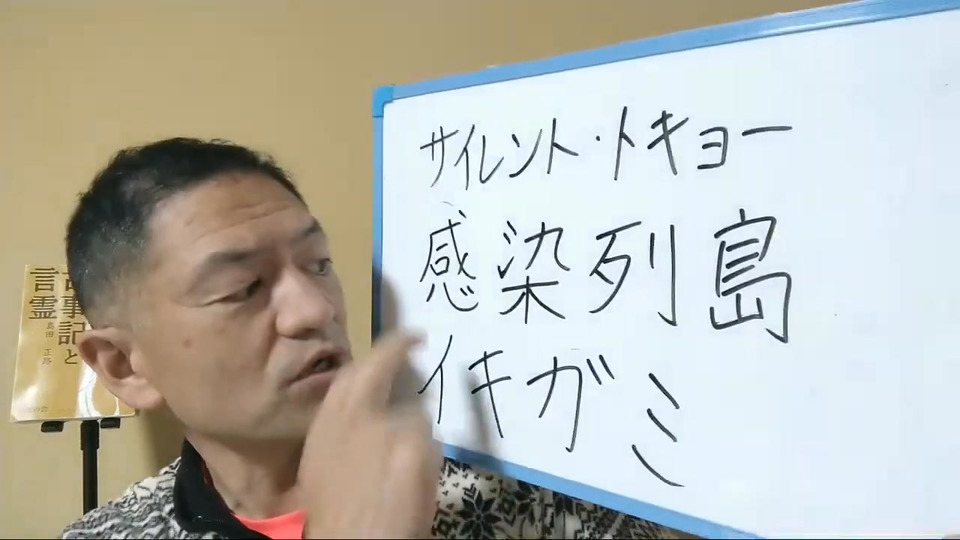 サイレント・トキョー
感染列島
イキガミ
古事記と
言霊
島田 正路